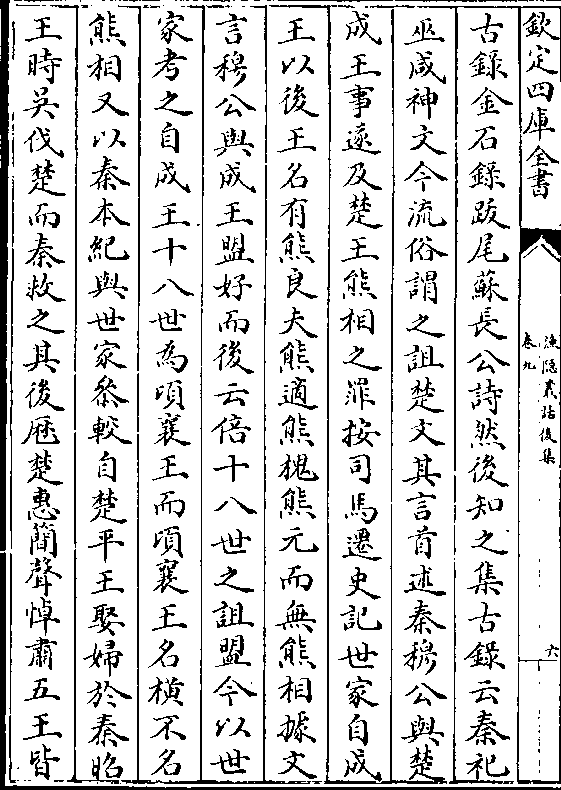 欽定四庫全書
漁隱叢話後集
卷九
六
古錄金石錄跋尾蘇長公詩然後知之集古錄云秦祀
巫咸神文今流俗謂之詛楚文其言首述秦穆公與楚
成王事遂及楚王熊相之罪按司馬遷史記世家自成
王以後王名有熊良夫熊適熊槐熊元而無熊相據文
言穆公與成王盟好而後云倍十八世之詛盟今以世
家考之自成王十八世為頃襄王而頃襄王名橫不名
熊相又以秦本紀與世家叅較自楚平王娶婦於秦昭
王時吳伐楚而秦救之其後歷楚惠簡聲悼肅五王皆